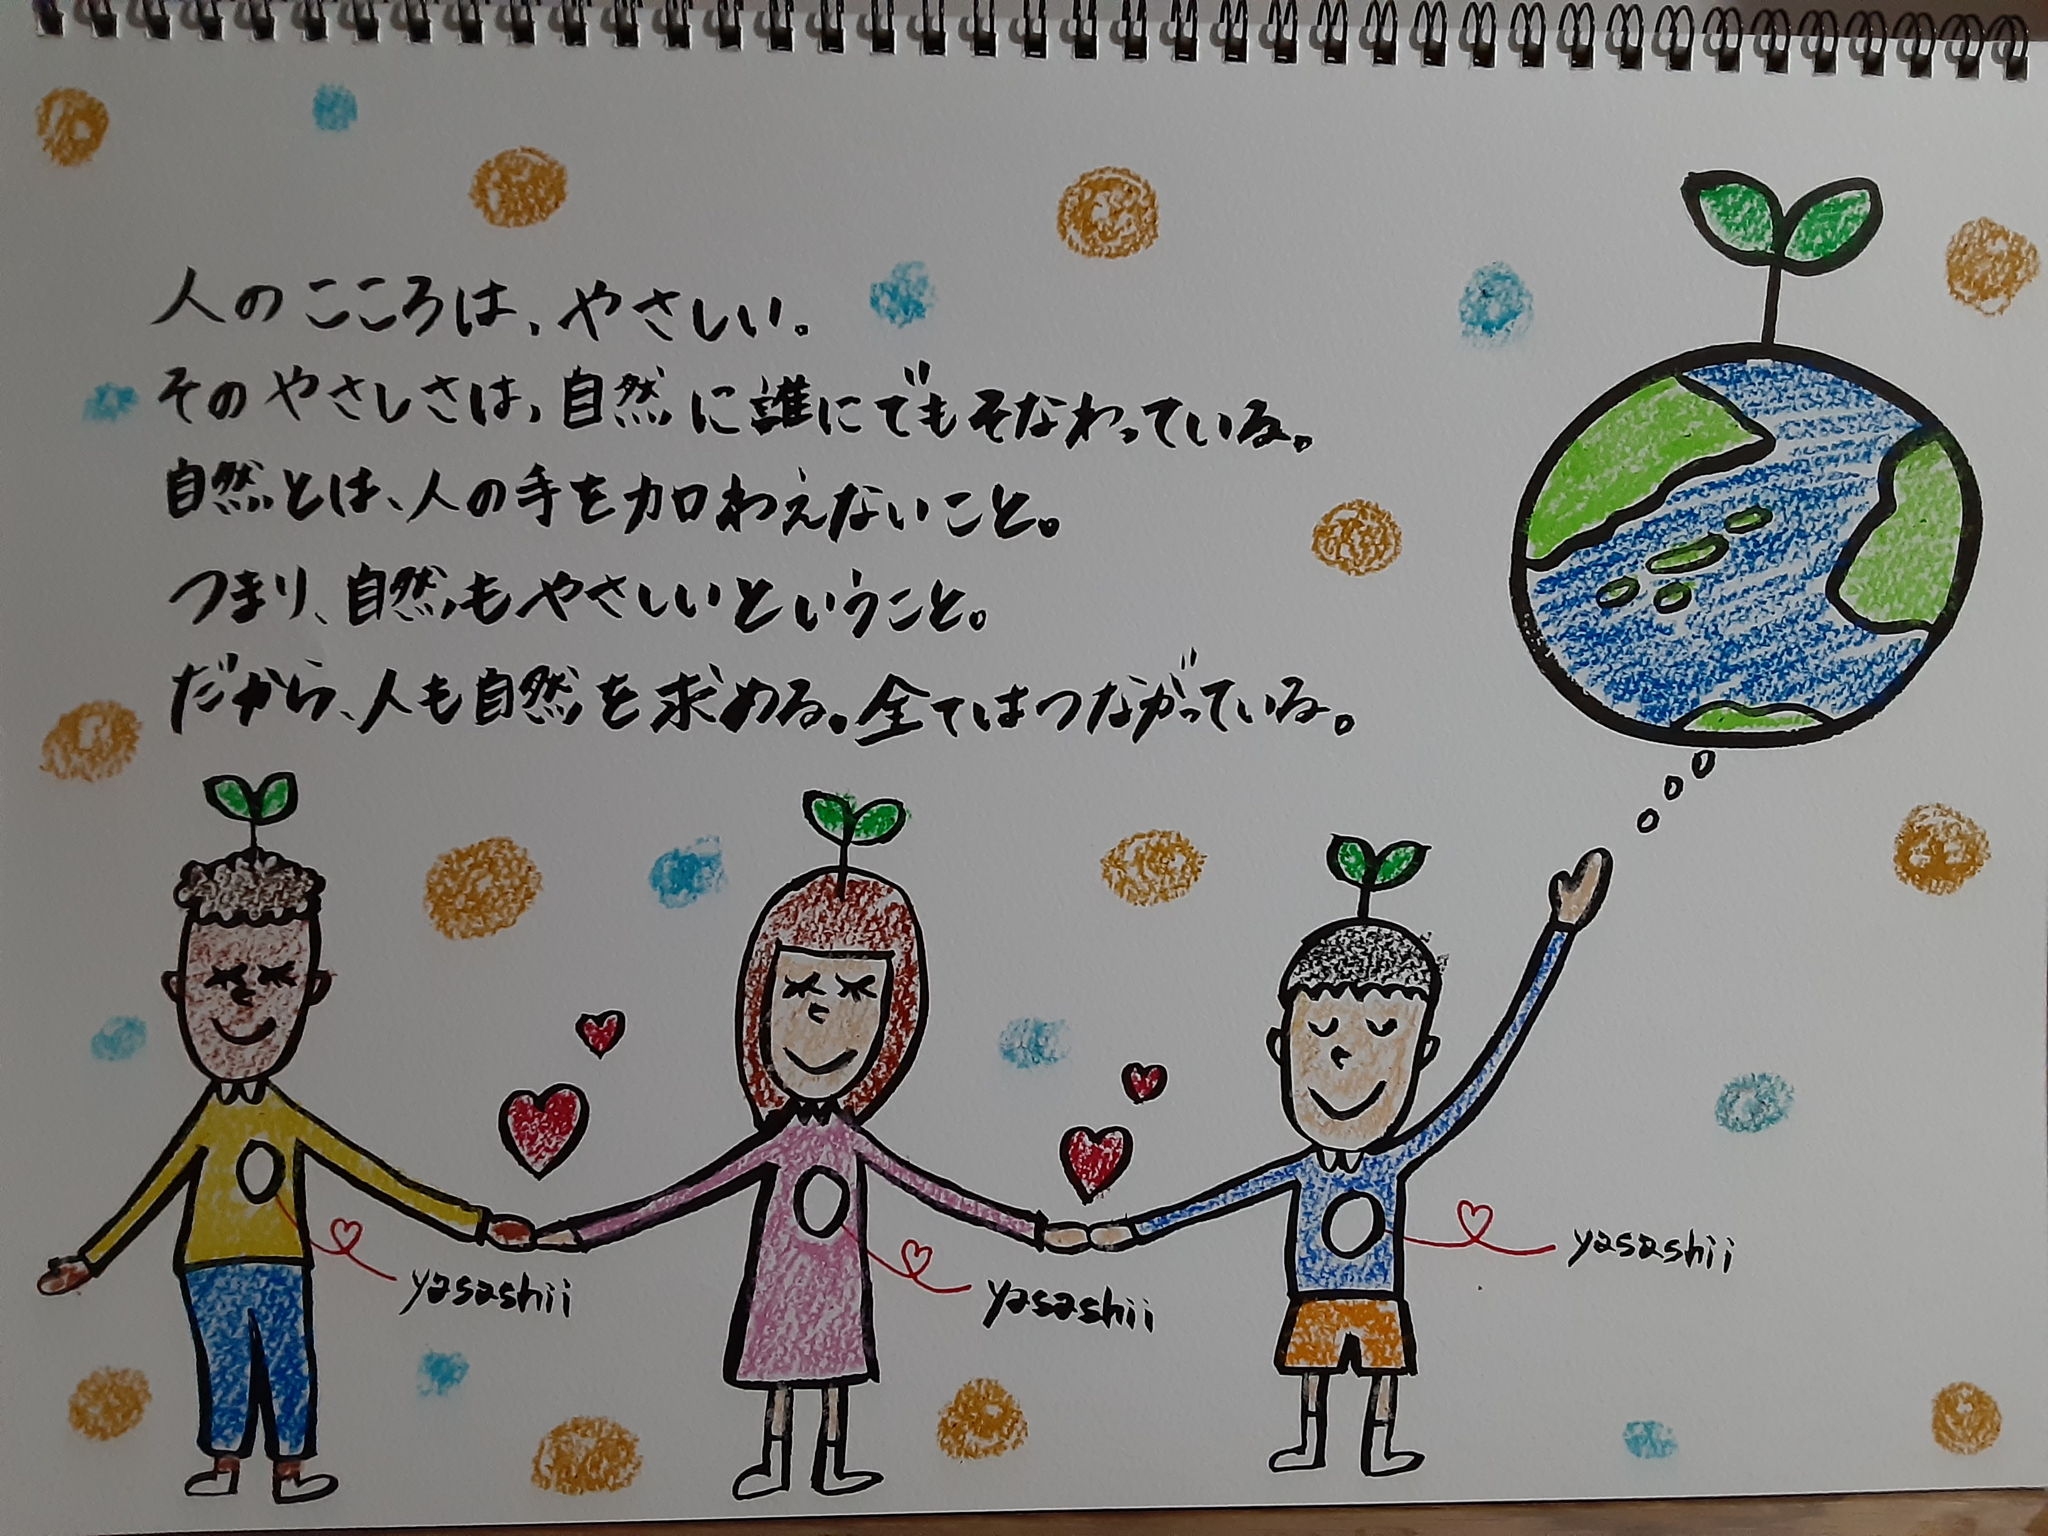 人のこころは、やさしい。
そのやさしさは、自然に誰にでもそなわっている。
自然とは、人の手を加わえないこと。
つまり、自然もやさしいということ。
だから、人も自然を求める。全てはつながっている。
yasashii
yasashii
yasashii